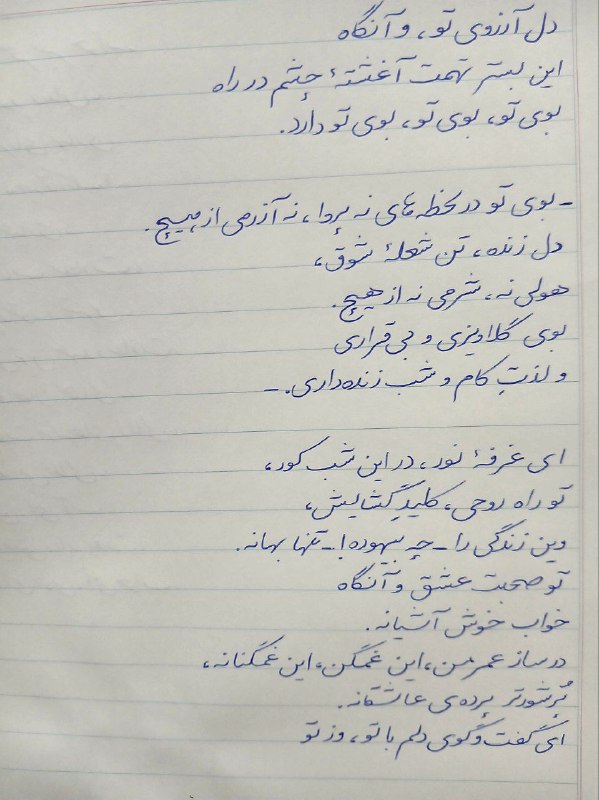 دل آرزوی تو، و آنگاه
این بستر تهمت آغشتهٔ چشم در راه
بوی تو، بوی تو، بوی تو دارد.
ـ بوی تو در لحظه‌های نه پروا، نه آزرمی از هیچ.
دل زنده، تن شعلهٔ شوق،
هولی نه، شرمی نه از هیچ.
بوی گلاویزی و بی‌قراری
و لذتِ کام و شب زنده‌داری. ـ
ای غرفهٔ نور، در این شب کور،
تو راه روحی، کلیدِ گشایش،
وین زندگی را ـ چه بیهوده! ـ تنها بهانه.
تو صحبت عشق و آنگاه
خواب خوش آشیانه.
در ساز عمر من، این غمگن، این غمگنانه،
پُرشورتر پرده‌ی عاشقانه.
ای گفت و گوی دلم با تو، وز تو